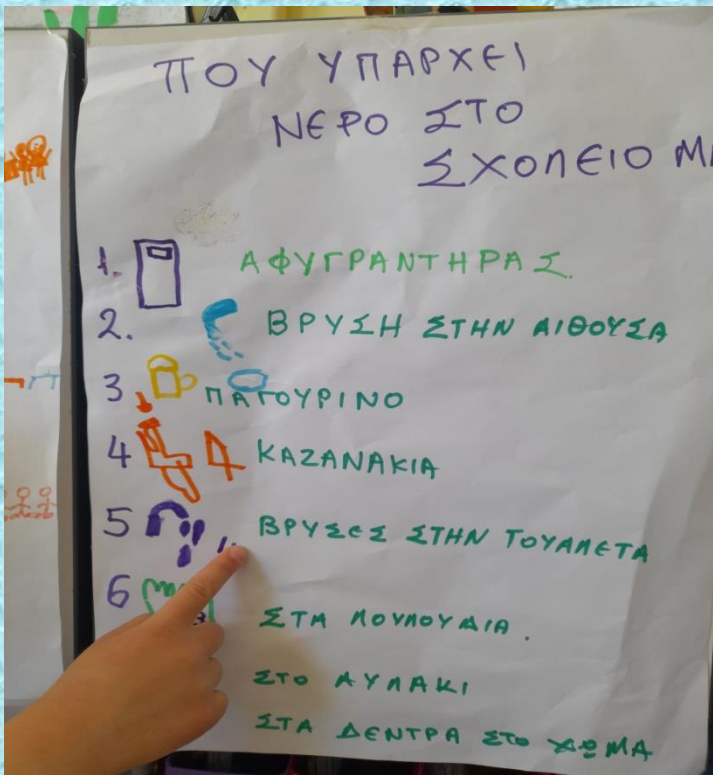 ΠΟΥ ΥΠΑΡΧΕΙ
ΝΕΡΟ ΣΤΟ
ΣΧΟΛΕΙΟ ΜΑ
1. ΑΦΥΓΡΑΝΤΗΡΑΣ.
2. ΒΡΥΣΗ ΣΤΗΝ ΑΙΘΟΥΣΑ
3 ΠΑΓΟΥΡΙΝΟ
4 ΚΑΖΑΝΑΚΙΑ
5 ΒΡΥΣΕΣ ΣΤΗΝ ΤΟΥΑΛΕΤΑ
6 ΣΤΑ ΛΟΥΛΟΥΔΙΑ.
ΣΤΟ ΑΥΛΑΚΙ
ΣΤΑ ΔΕΝΤΡΑ ΣΤΟ ΧΩΜΑ